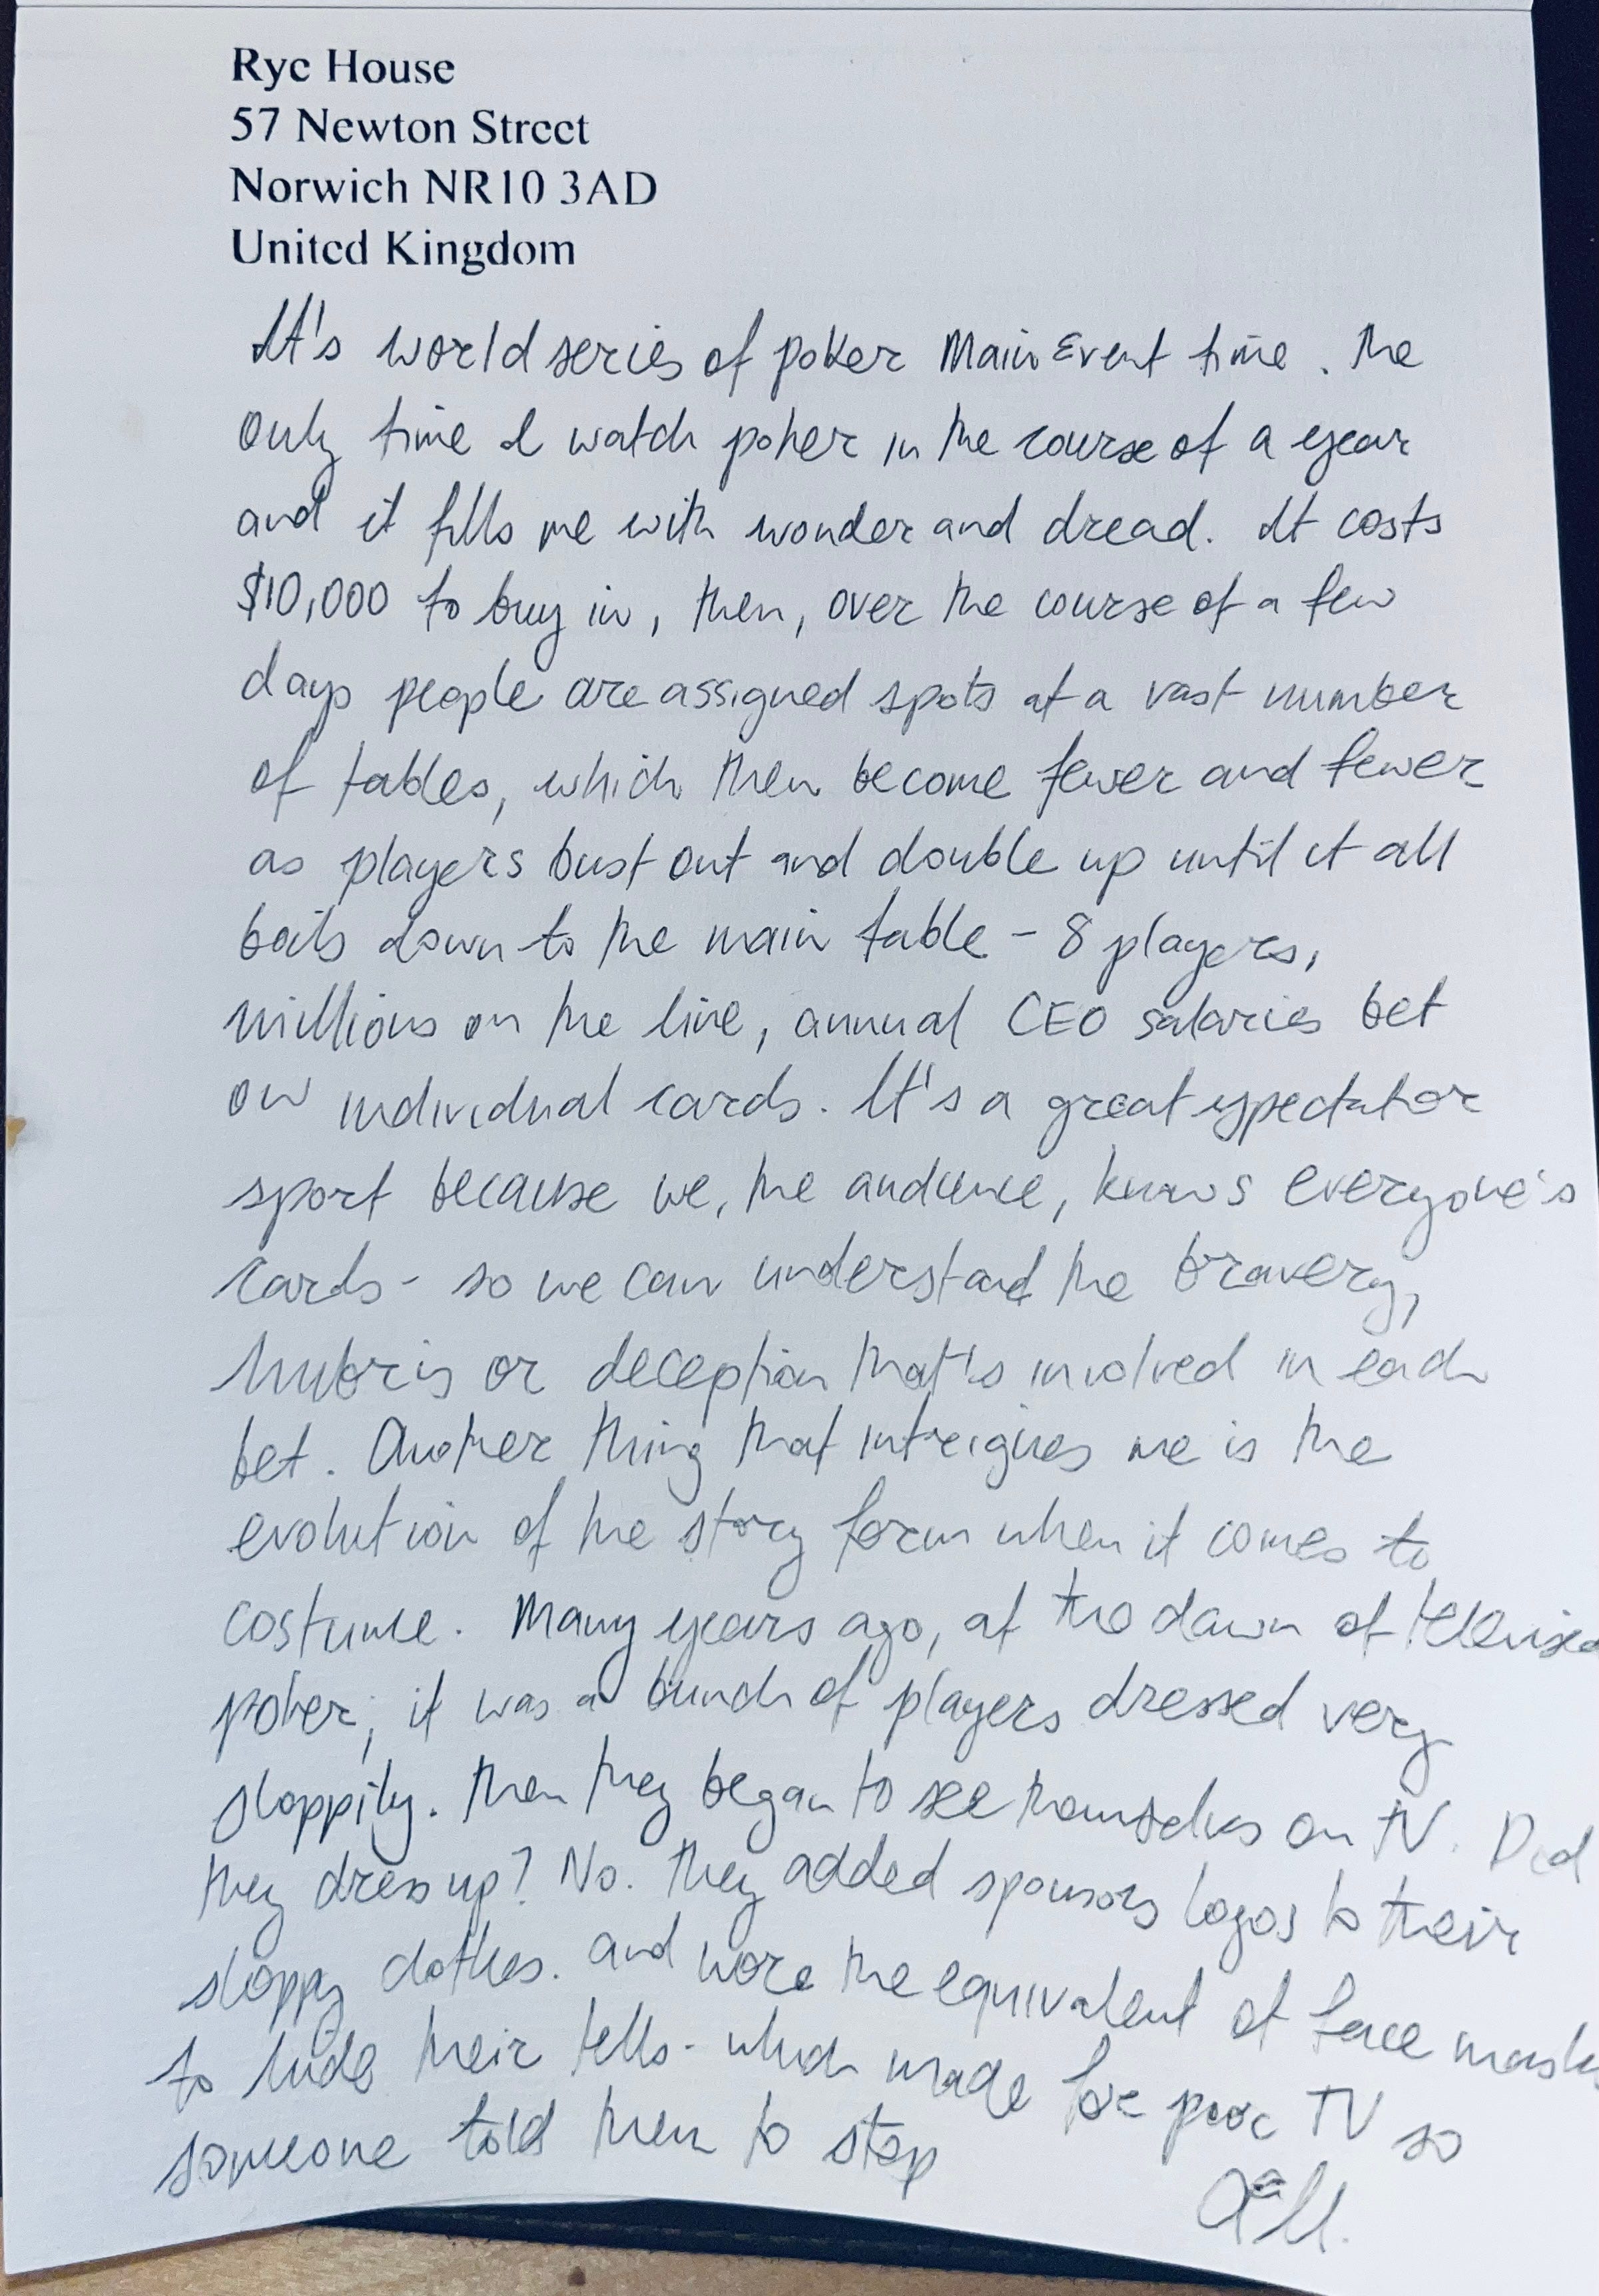 Rye House
57 Newton Street
Norwich NR10 3AD
United Kingdom
It's world series of poker Main Event time. The
only time I watch poker in the course of a year
and it fills me with wonder and dread. It costs
$10,000 to buy in, then, over the course of a few
days people are assigned spots at a vast number
of tables, which then become fewer and fewer
as players bust out and double up until it all
boils down to the main table - 8 players,
millions on the line, annual CEO salaries bet
on individual cards. It's a great spectator
sport because we, the audience, knows everyone's
cards - so we can understand the bravery,
hubris or deception that's involved in each
bet. Another thing that intrigues me is the
evolution of the story form when it comes to
costume. Many years ago, at the dawn of televised
poker, it was a bunch of players dressed very
sloppily. Then they began to see themselves on TV. Did
they dress up? No. They added sponsors logos to their
sloppy clothes. and wore the equivalent of face masks
to hide their tells - which made for poor TV so
someone told them to stop